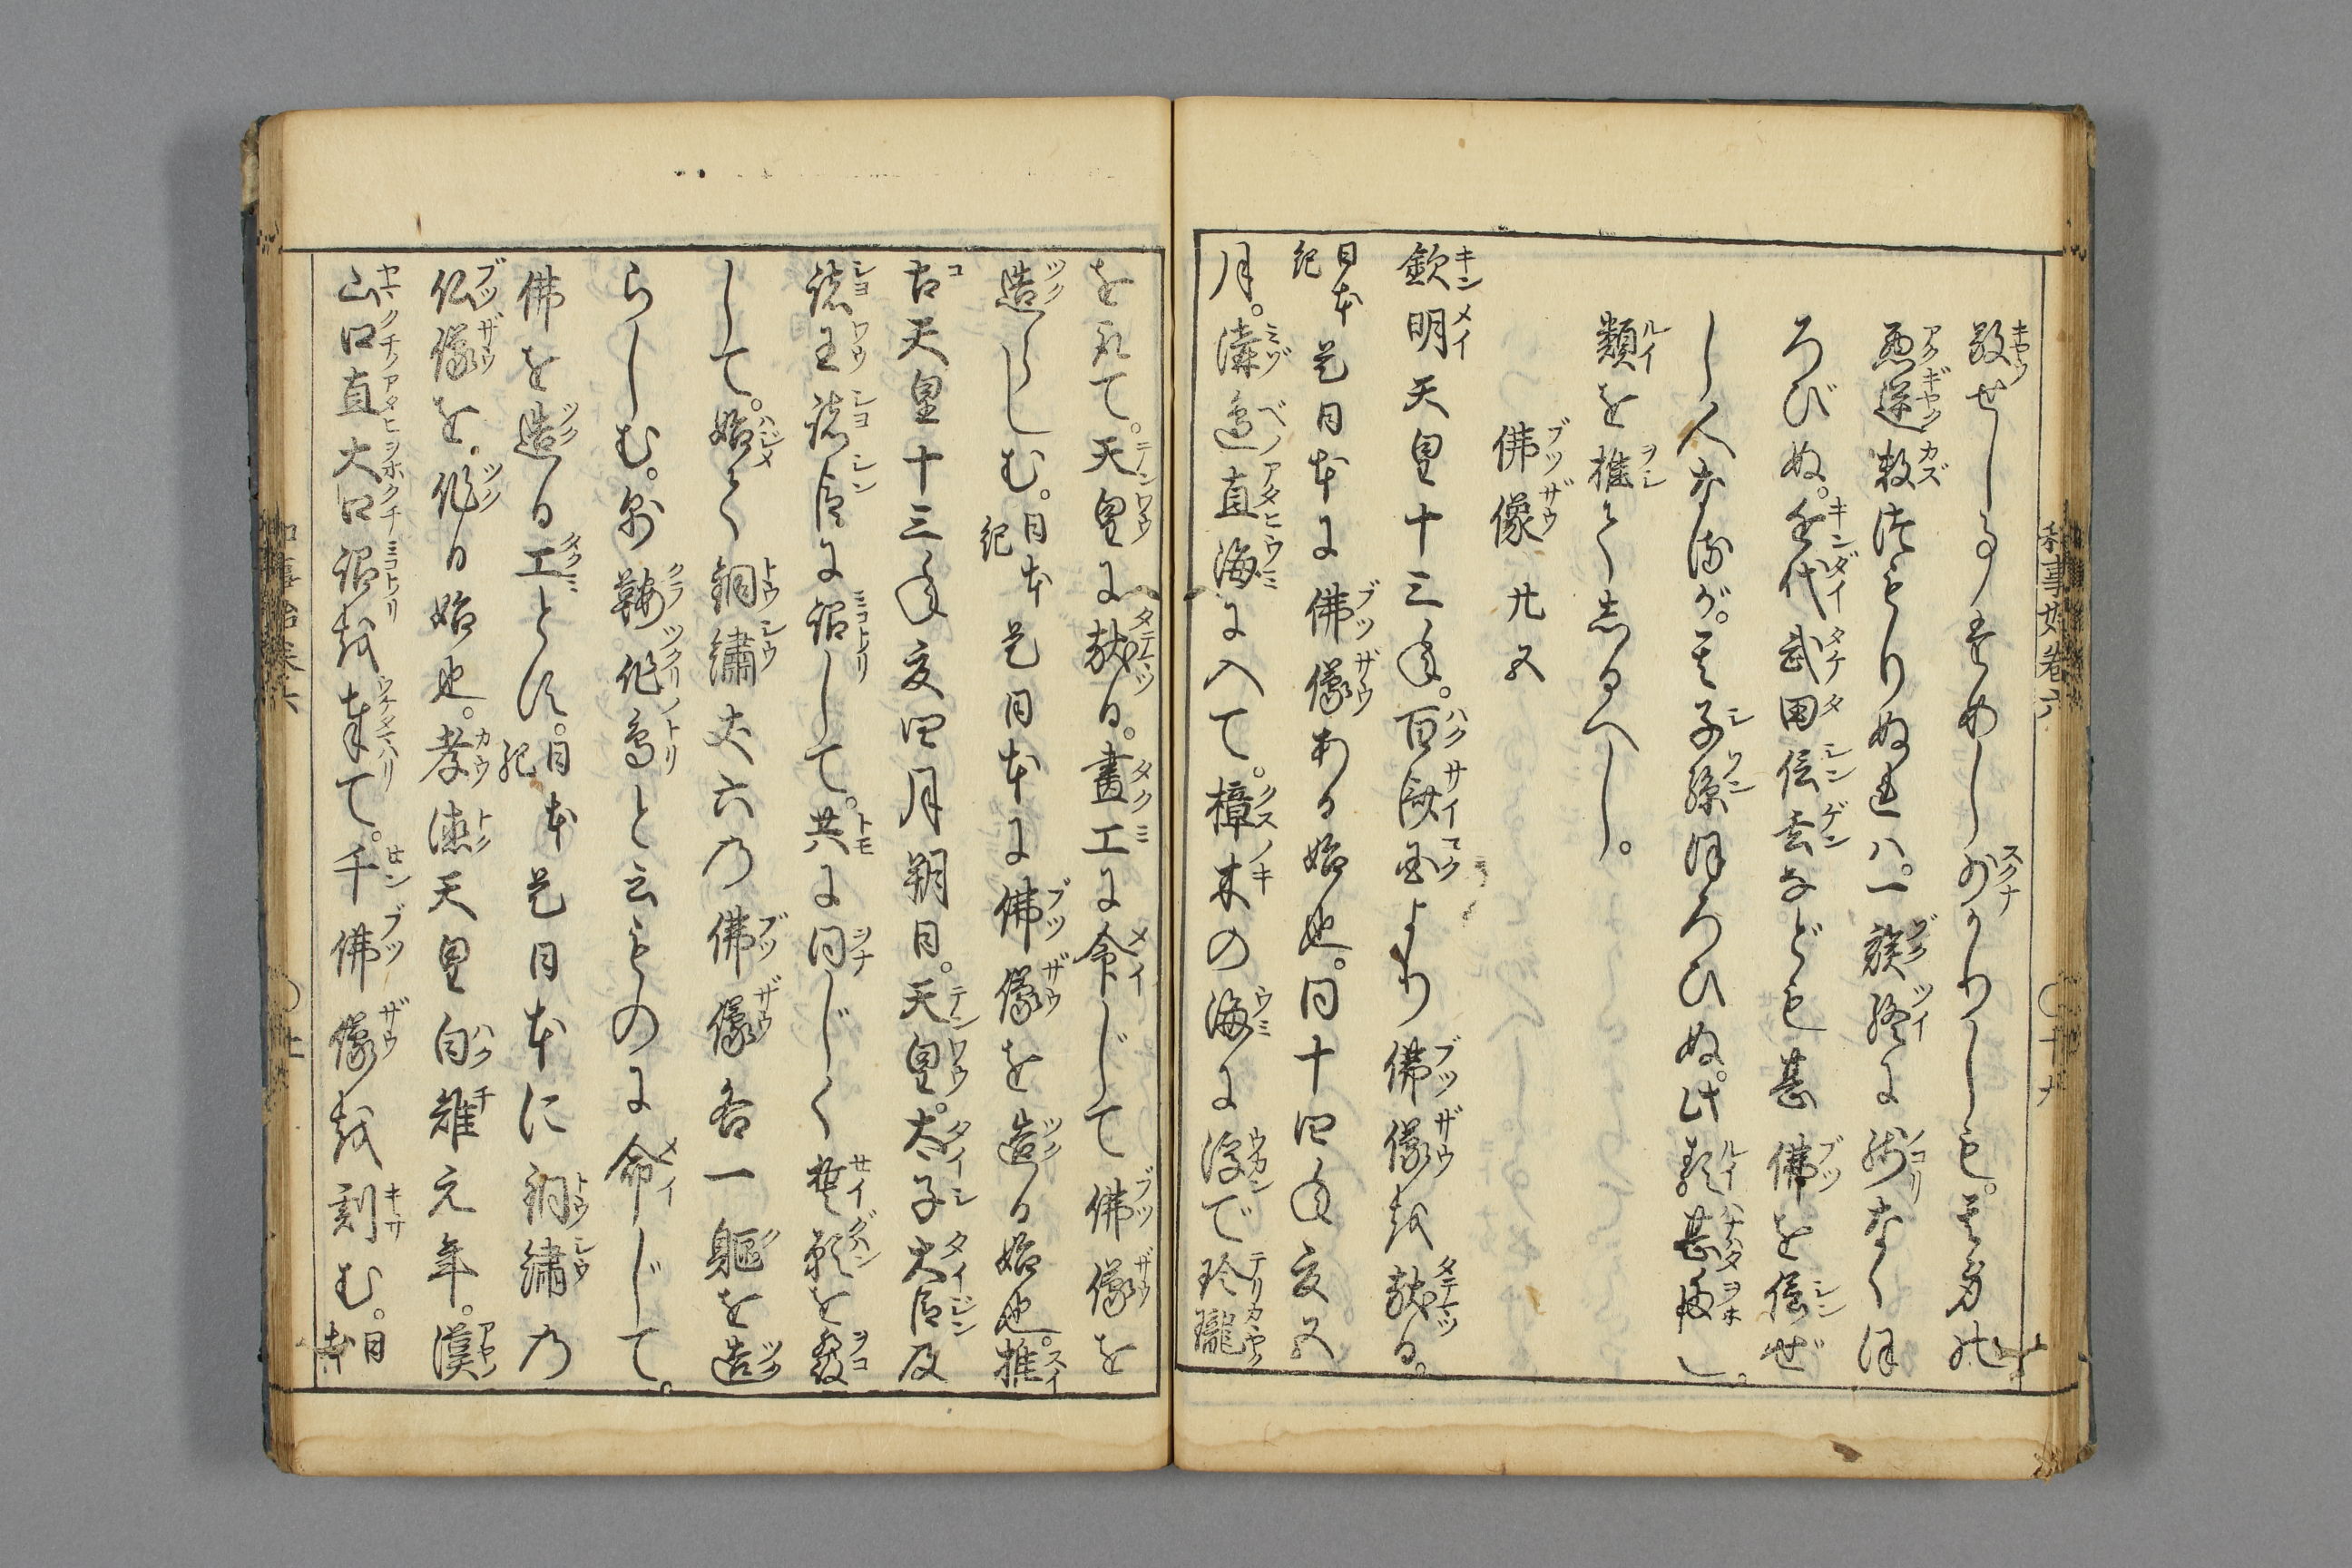 敬せしる事をやめし少かりしも。其身の
悪逆数つもりぬれハ。一族終に残なくほ
ろびぬ。近代武田信玄なども甚佛を信ぜ
し人なるが。其子孫ほろひぬ。此類甚多し。
類を推てしるへし。
佛像 廿五
欽明天皇十三年。百済国より佛像を献る。
日本紀 是日本に佛像ある始也。同十四年夏五
月。溝邊直海に入て。樟木の海に浮で玲瓏
を取て。天皇に献る。畫工に命じて佛像を
造らしむ。日本紀 是日本に佛像を造る始也。推
古天皇十三年夏四月朔日。天皇。太子大臣及
諸王諸臣に詔して。共に同じく誓願を發
して。始て銅繍丈六の佛像各一躯を造
らしむ。則鞍作鳥と云ものに命じて。
佛を造る工とす。日本紀 是日本に銅繍の
仏像を。作る始也。孝徳天皇白雉元年。漢
山口直大口詔を奉て。千佛像を刻む。日本
和事始巻六 〇十九